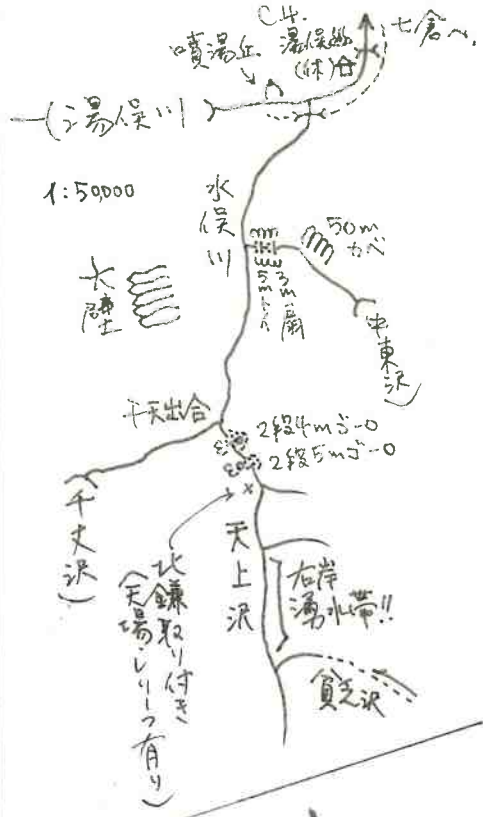 C4.
噴湯丘
湯俣
(休)
七倉へ
(湯俣川)
1:50,000
水俣川
50m
カベ
3m扇
5mトイ
大壁
中東沢)
千天出合
2段4mゴーロ
2段5mゴーロ
(千丈沢)
天上沢
北鎌取り付き
(天場・レリーフ有り)
右岸
湧水帯!!
貧乏沢